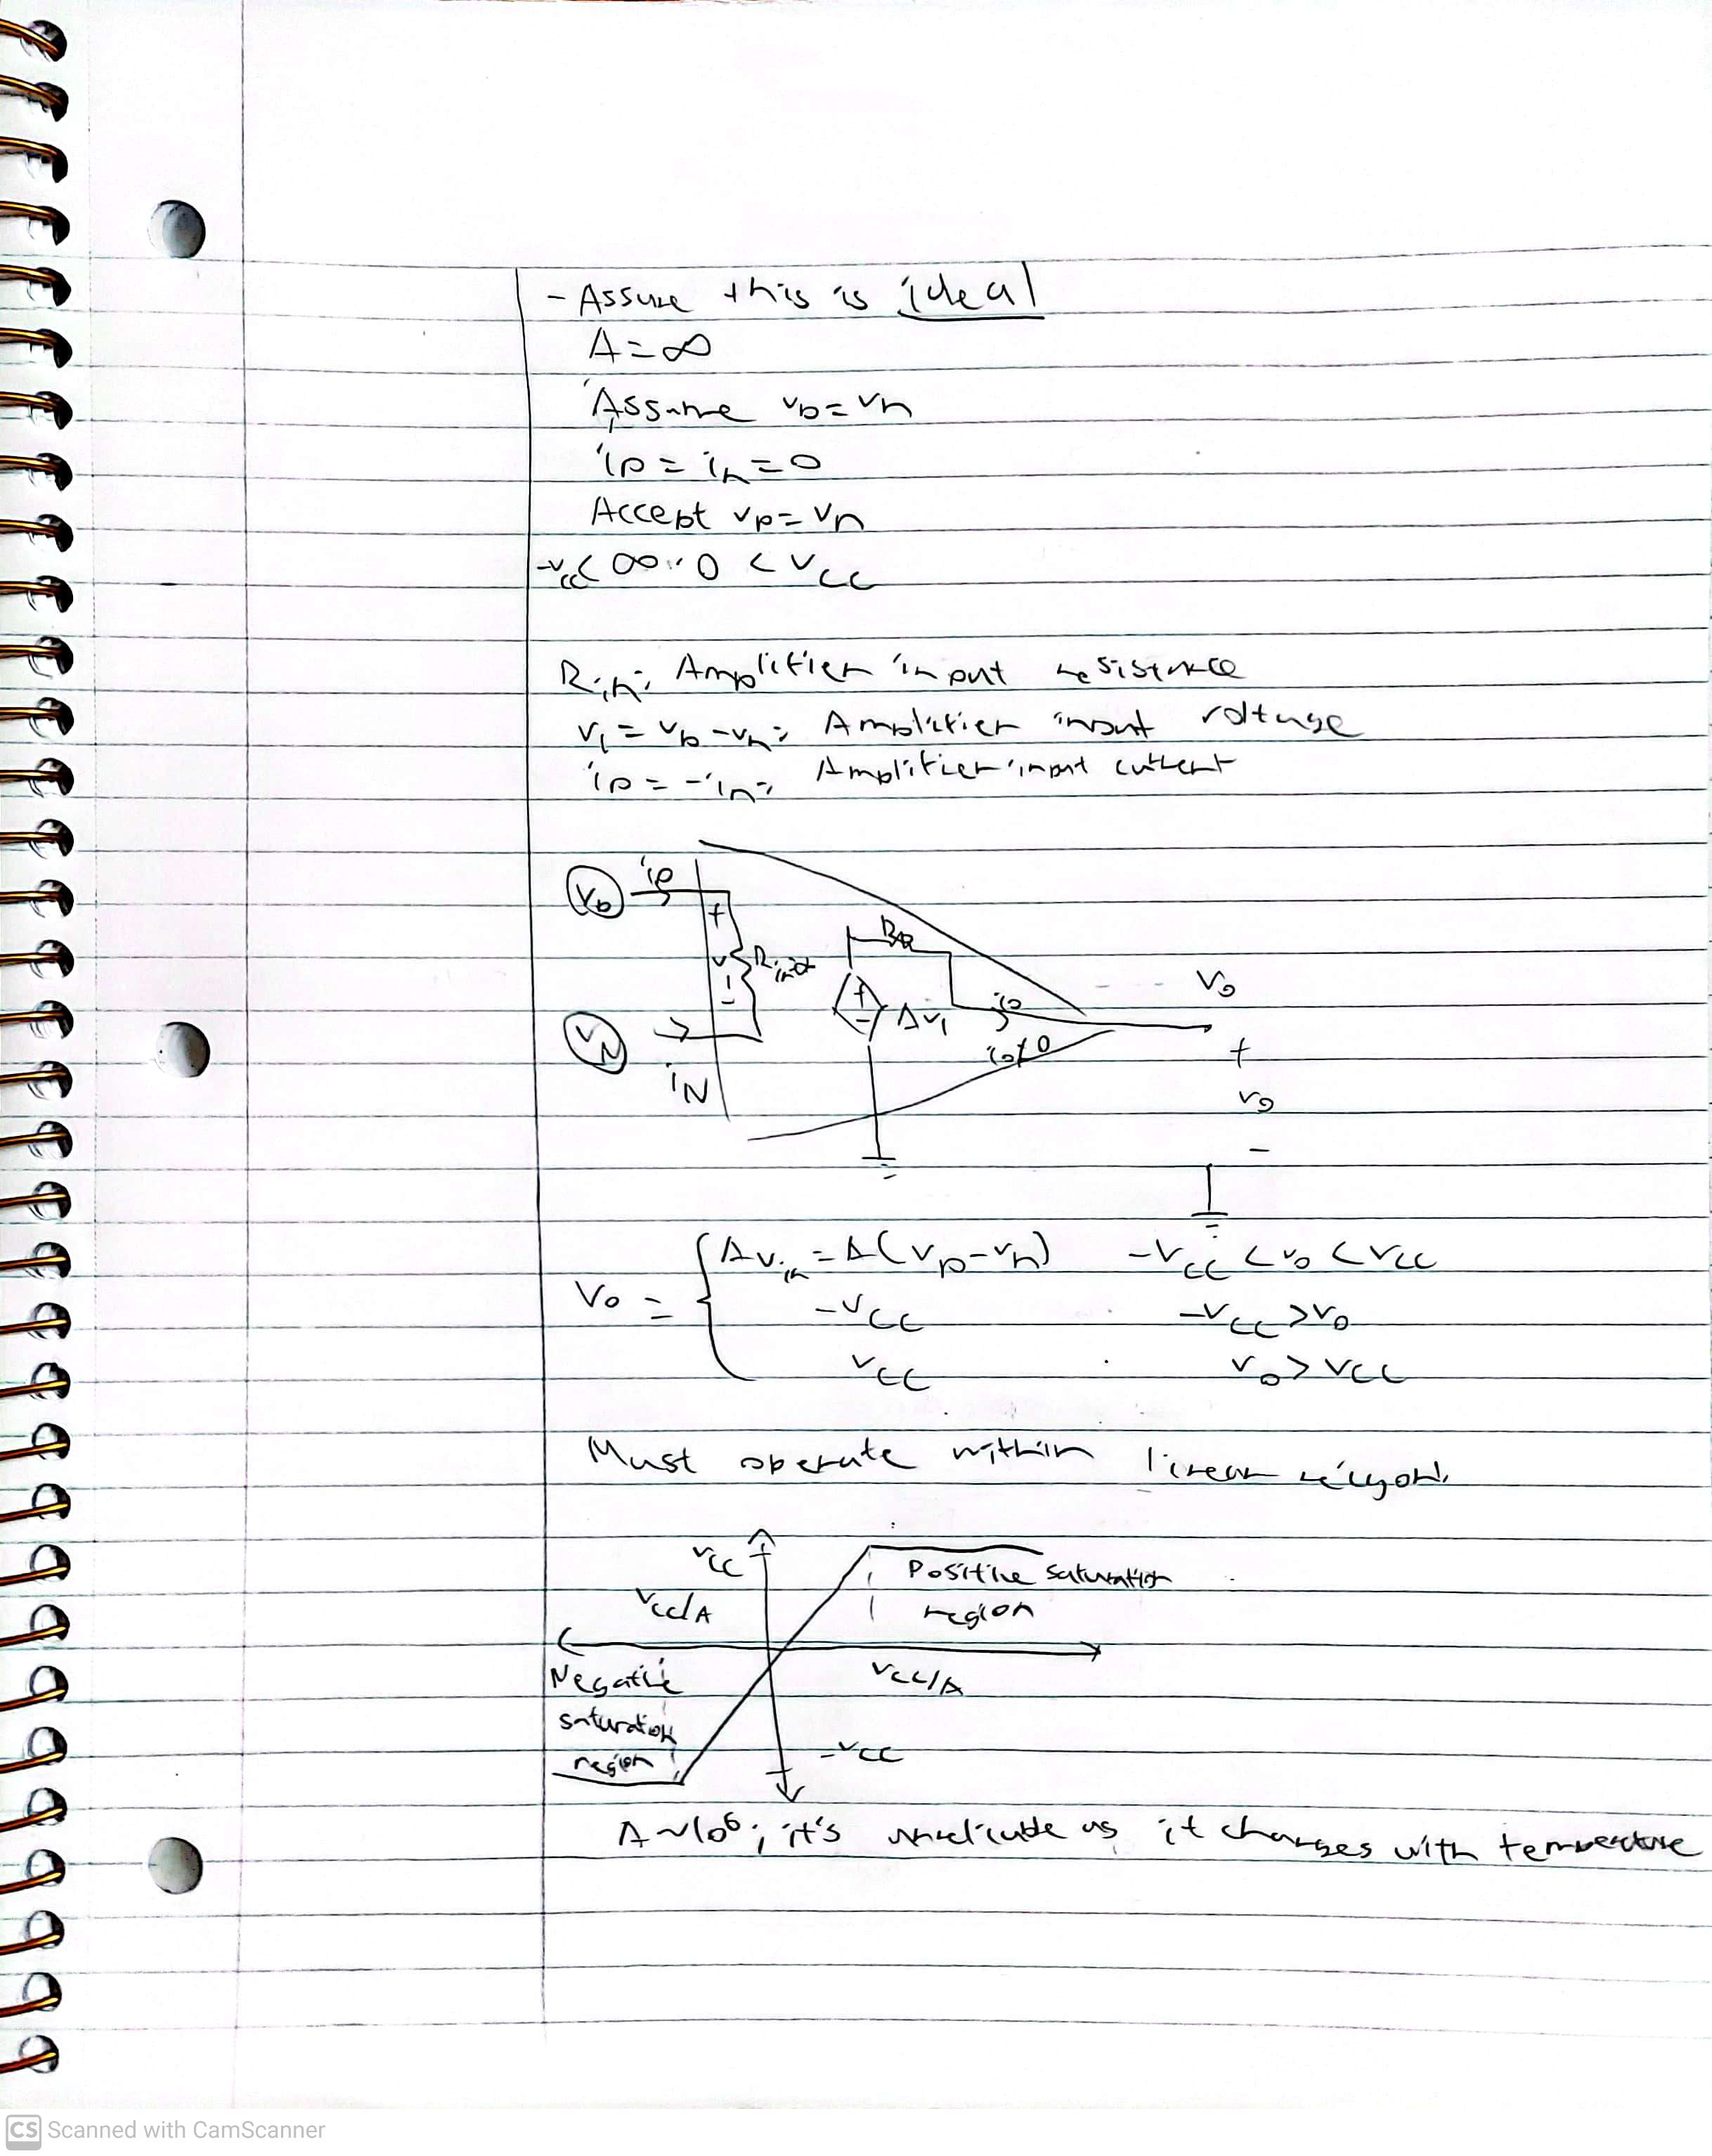 - Assume this is ideal
A = ∞
Assume vp = vn
ip = in = 0
Accept vp = vn
-vcc < ∞·0 < vcc
Rin: Amplifier input resistance
v1 = vp - vn: Amplifier input voltage
ip = -in: Amplifier input current
vp ip
+
v1 Rin
-
vN iN
+
-
Av1
io
io≠0
vo
+
vo
-
vo = { Avin = A(vp - vn) -vcc < vo < vcc
-vcc -vcc > vo
vcc vo > vcc
Must operate within linear reigon.
vcc Positive saturation
vcc/A region
Negative vcc/A
saturation
region -vcc
A~10⁶; it's as it changes with temperature
CS Scanned with CamScanner